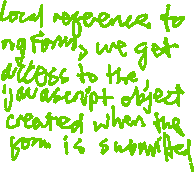 local reference to
ngForm, we get
access to the
javascript object
created when the
form is submitted